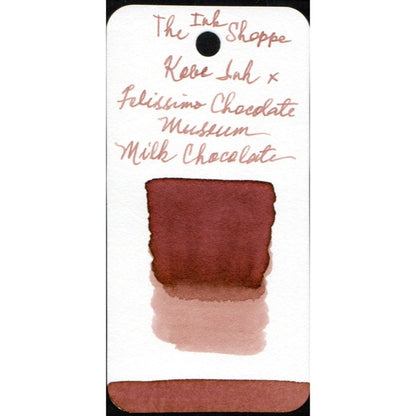 The Ink Shoppe
Kobe Ink x
Felissimo Chocolate
Museum
Milk Chocolate